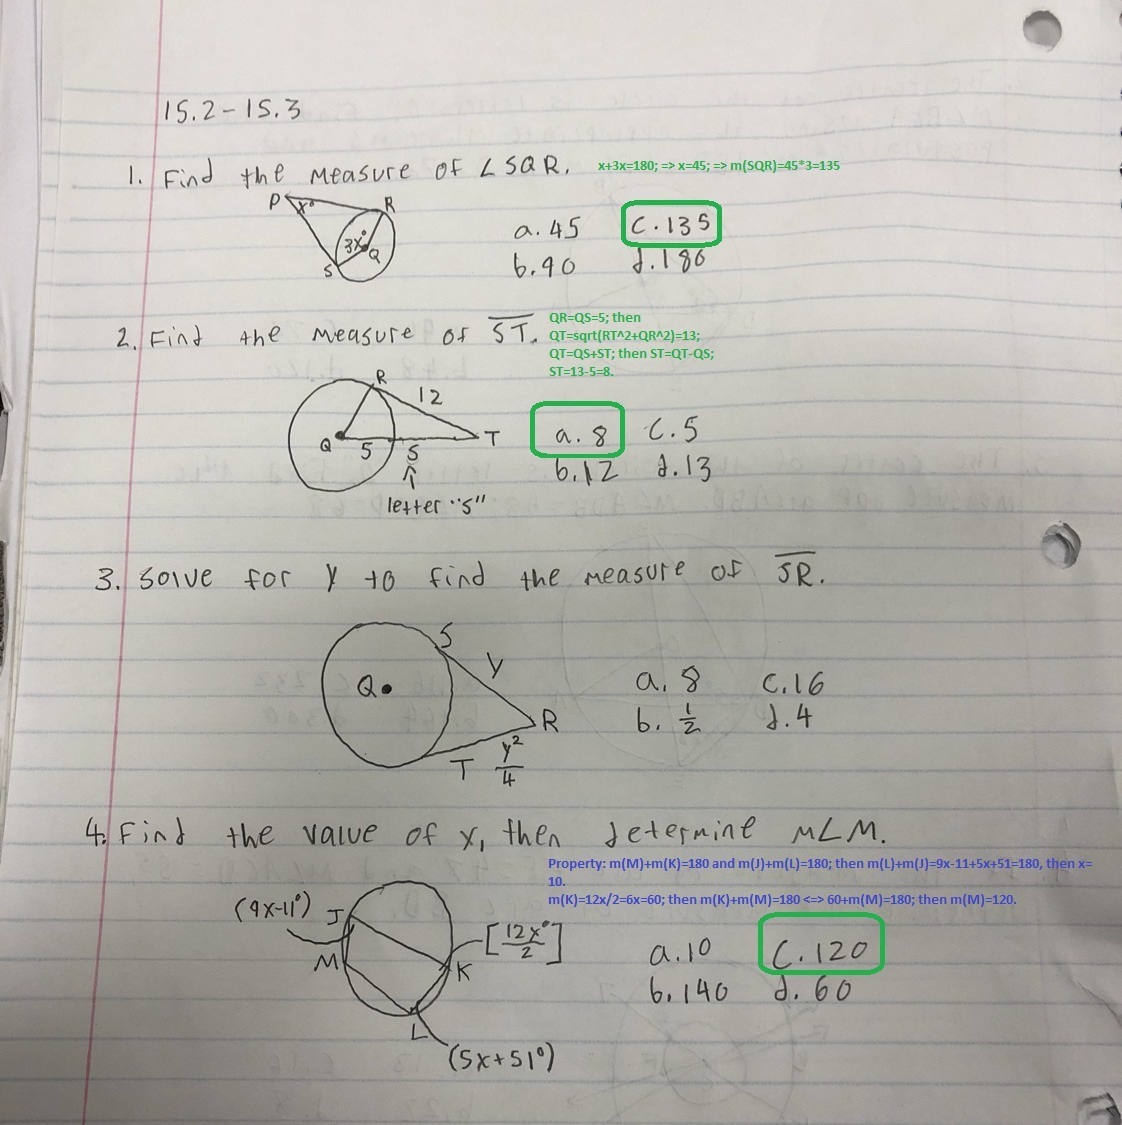 15.2-15.3
1. Find the measure of ∠SQR. x+3x=180; => x=45; => m(SQR)=45*3=135
P x° R
3x° Q
S
a. 45 c. 135
b. 90 d. 180
2. Find the measure of ST. QR=QS=5; then
QT=sqrt(RT^2+QR^2)=13;
QT=QS+ST; then ST=QT-QS;
ST=13-5=8.
R 12
Q 5 S T
↑
letter "S"
a. 8 c. 5
b. 12 d. 13
3. Solve for y to find the measure of SR.
S y
Q R
T y²/4
a. 8 c. 16
b. 1/2 d. 4
4. Find the value of x, then determine m∠M.
Property: m(M)+m(K)=180 and m(J)+m(L)=180; then m(L)+m(J)=9x-11+5x+51=180, then x=
10.
m(K)=12x/2=6x=60; then m(K)+m(M)=180 <=> 60+m(M)=180; then m(M)=120.
(9x-11°) J
M K [12x°/2]
L
(5x+51°)
a. 10 c. 120
b. 140 d. 60